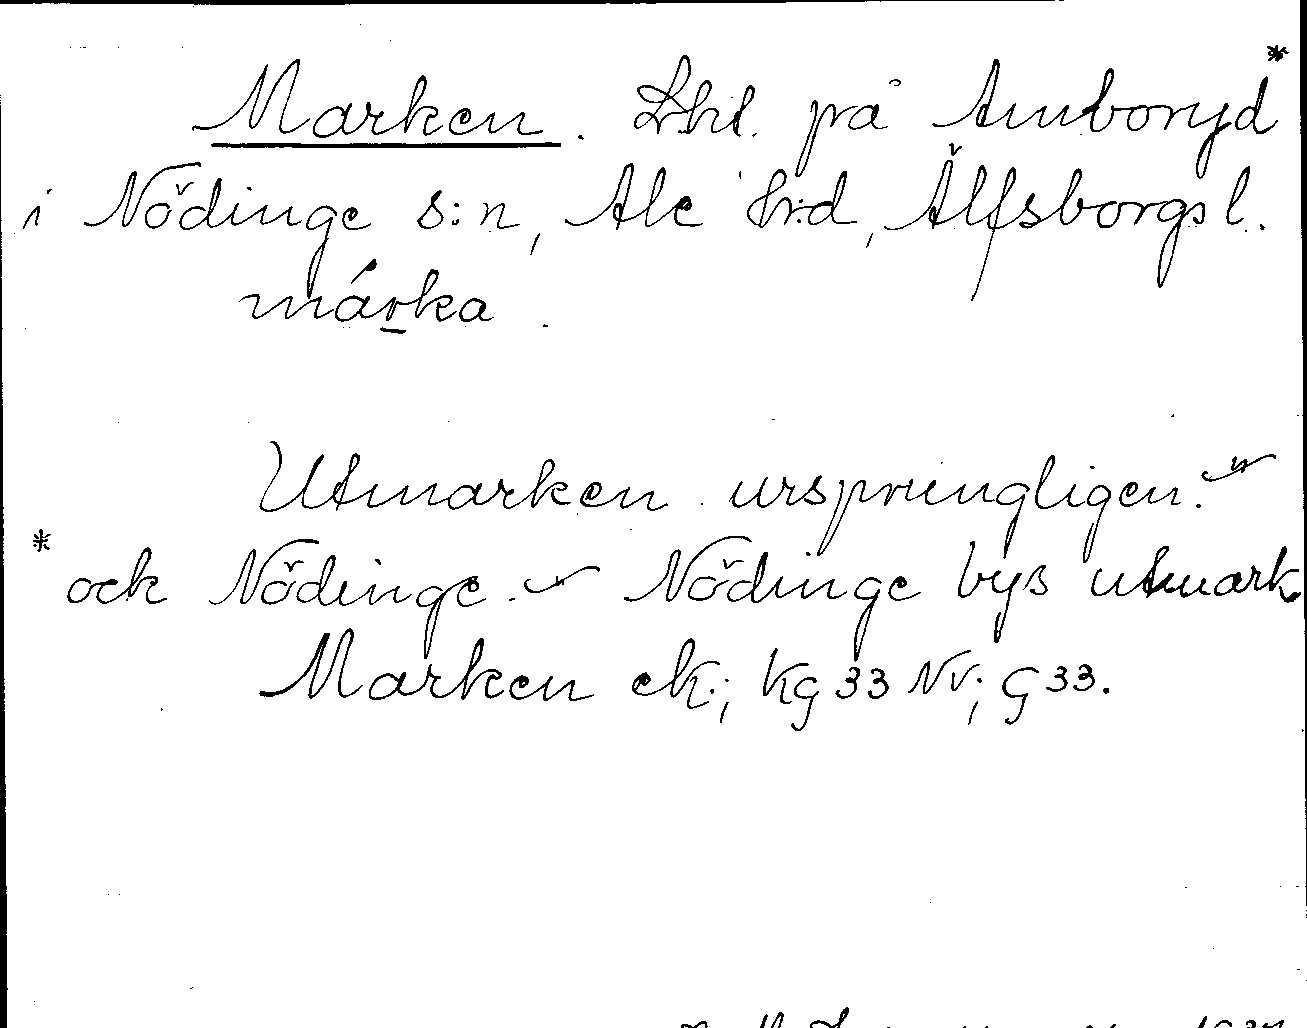 Marken. Lhl. på Amboryd*
i Nödinge s:n, Ale hrd, Älfsborgs l.
márka.
Utmarken ursprungligen.
* ock Nödinge. Nödinge bys utmark
Marken ek.; Kg 33 NV; G 33.